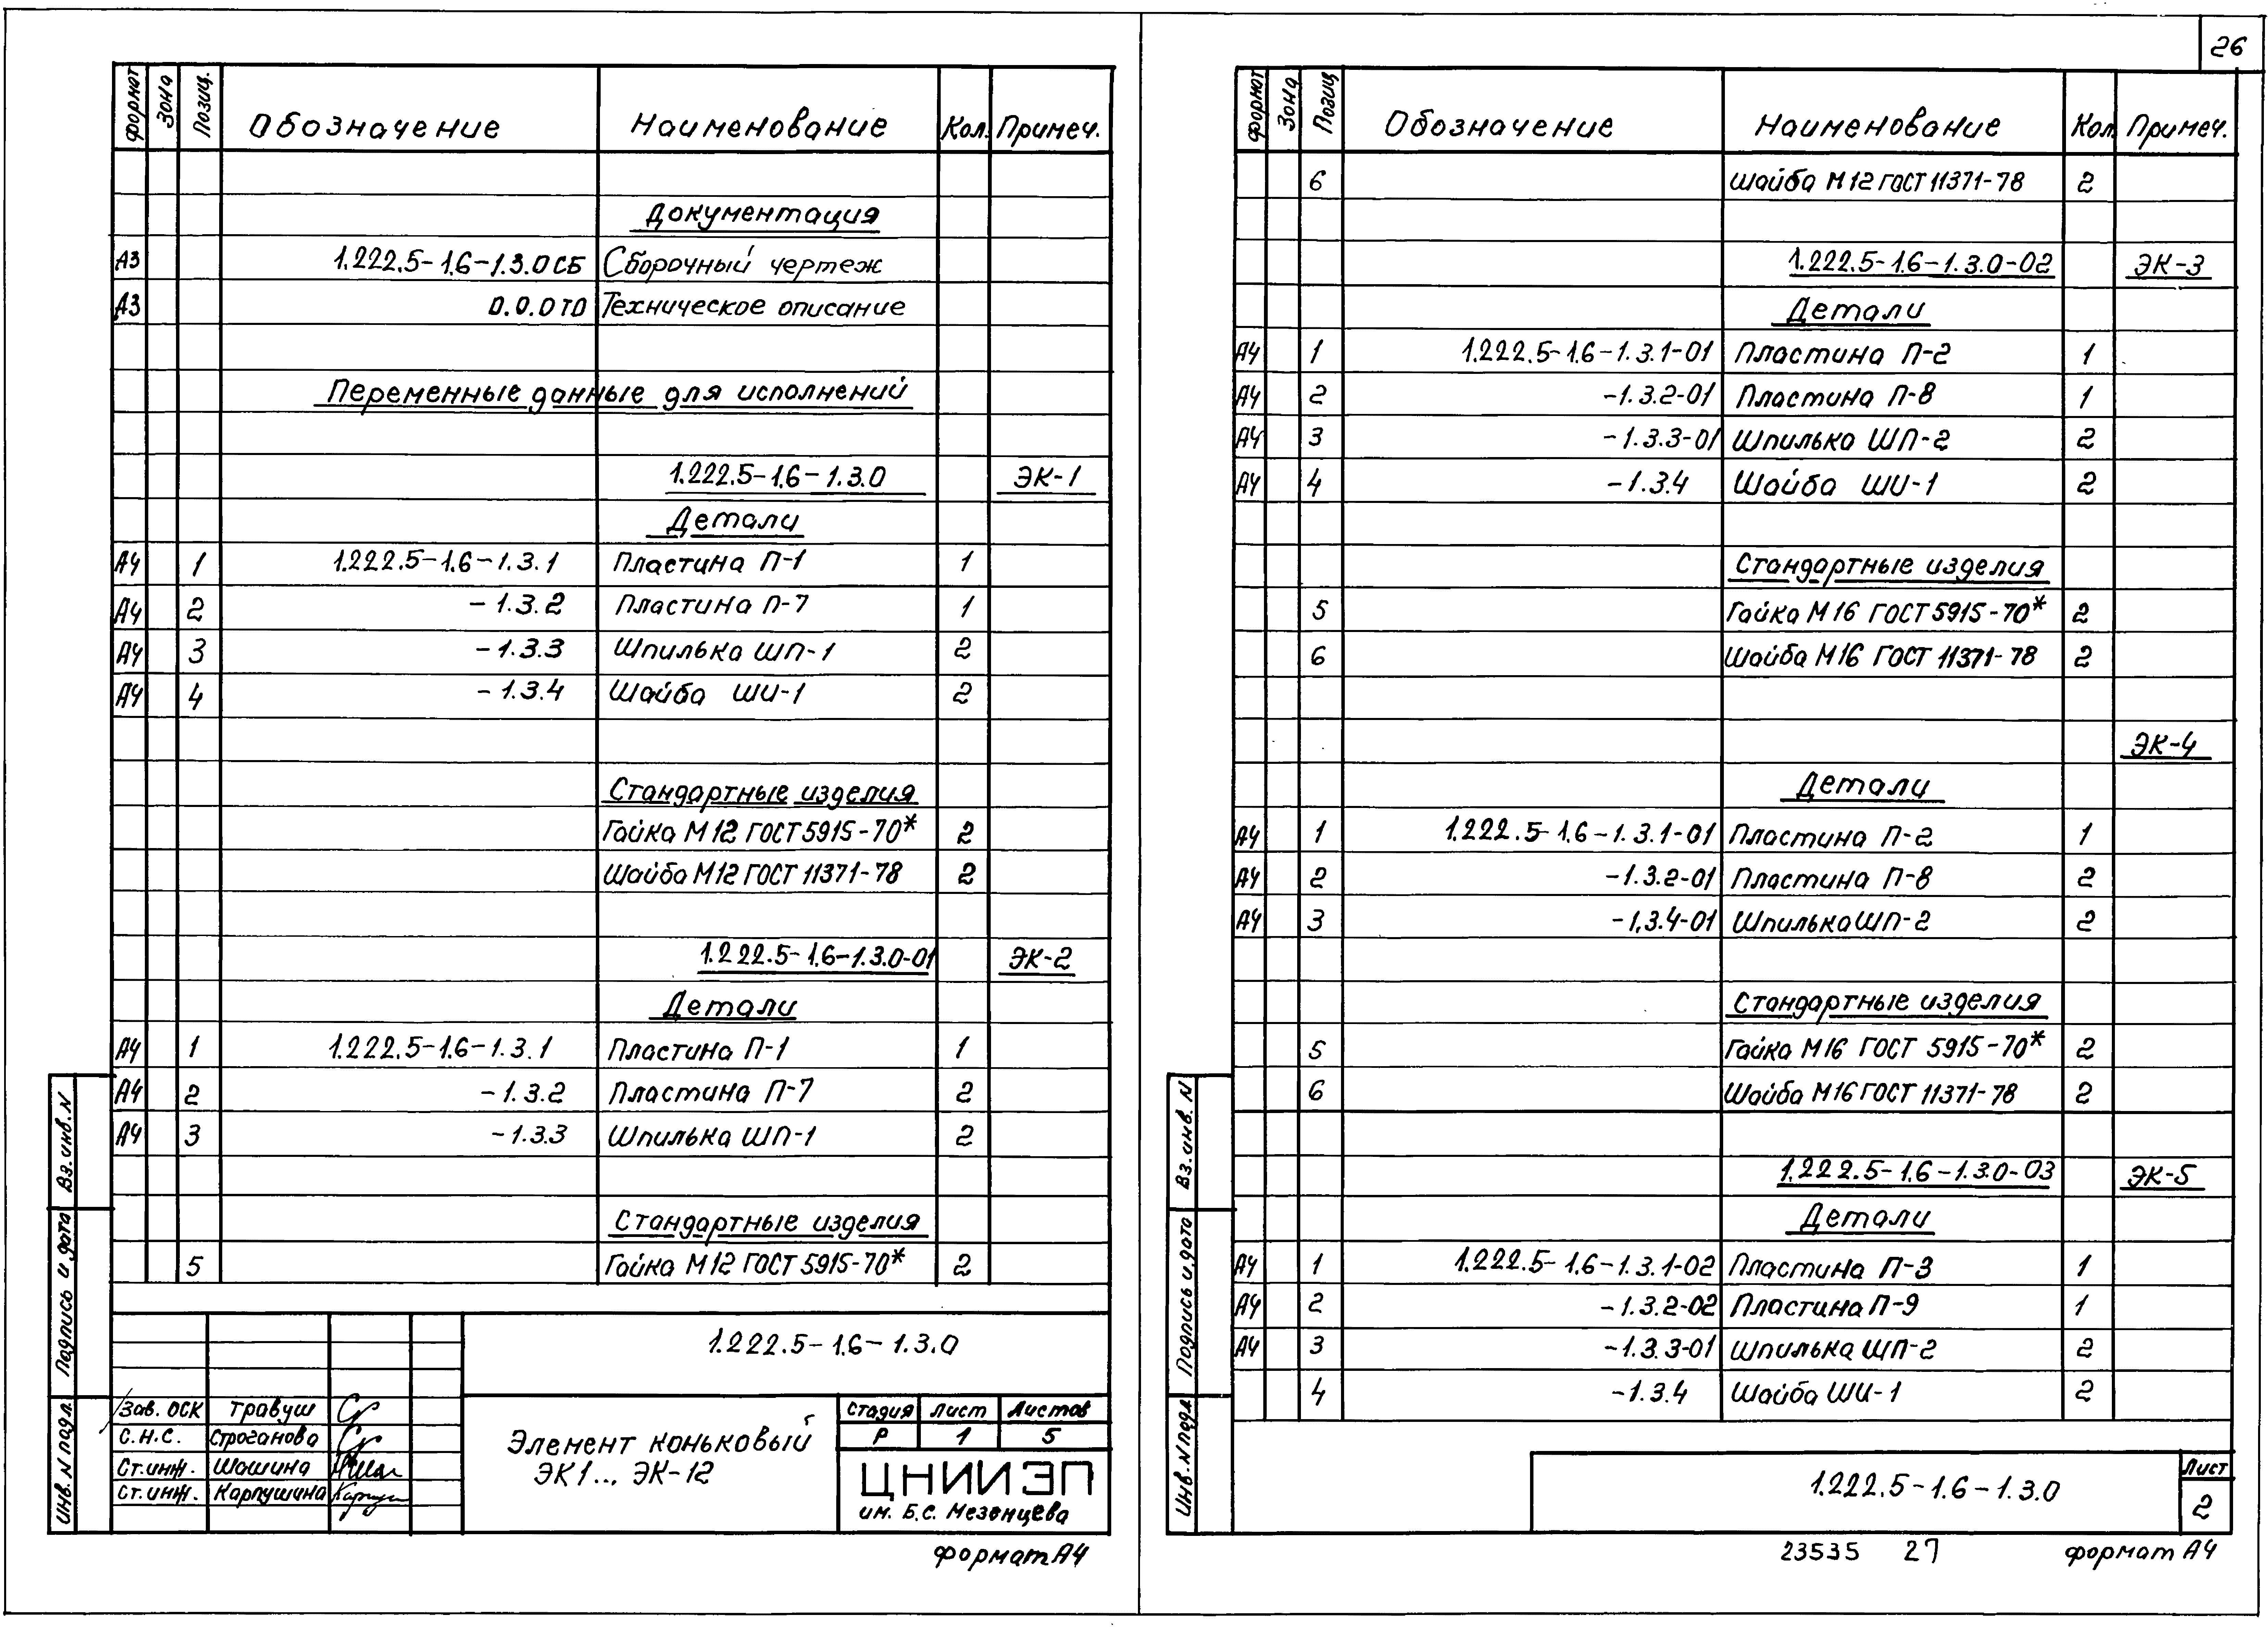 26
формат Зона Позиц. Обозначение Наименование Кол. Примеч.
Документация
А3 1.222.5-1.6-1.3.0 СБ Сборочный чертеж
А3 0.0.0 ТО Техническое описание
Переменные данные для исполнений
1.222.5-1.6-1.3.0 ЭК-1
Детали
А4 1 1.222.5-1.6-1.3.1 Пластина П-1 1
А4 2 -1.3.2 Пластина П-7 1
А4 3 -1.3.3 Шпилька ШП-1 2
А4 4 -1.3.4 Шайба ШИ-1 2
Стандартные изделия
Гайка М12 ГОСТ 5915-70* 2
Шайба М12 ГОСТ 11371-78 2
1.222.5-1.6-1.3.0-01 ЭК-2
Детали
А4 1 1.222.5-1.6-1.3.1 Пластина П-1 1
А4 2 -1.3.2 Пластина П-7 2
А4 3 -1.3.3 Шпилька ШП-1 2
Стандартные изделия
5 Гайка М12 ГОСТ 5915-70* 2
Вз. инв. N
Подпись и дата
Инв. N подл.
1.222.5-1.6-1.3.0
Зав. ОСК Травуш
С.Н.С. Строганова
Ст. инж. Шашина
Ст. инж. Карпушина
Элемент коньковый
ЭК1... ЭК-12
Стадия Лист Листов
Р 1 5
ЦНИИЭП
им. Б.С. Мезенцева
формат А4
формат Зона Позиц Обозначение Наименование Кол. Примеч.
6 Шайба М12 ГОСТ 11371-78 2
1.222.5-1.6-1.3.0-02 ЭК-3
Детали
А4 1 1.222.5-1.6-1.3.1-01 Пластина П-2 1
А4 2 -1.3.2-01 Пластина П-8 1
А4 3 -1.3.3-01 Шпилька ШП-2 2
А4 4 -1.3.4 Шайба ШИ-1 2
Стандартные изделия
5 Гайка М16 ГОСТ 5915-70* 2
6 Шайба М16 ГОСТ 11371-78 2
ЭК-4
Детали
А4 1 1.222.5-1.6-1.3.1-01 Пластина П-2 1
А4 2 -1.3.2-01 Пластина П-8 2
А4 3 -1.3.4-01 Шпилька ШП-2 2
Стандартные изделия
5 Гайка М16 ГОСТ 5915-70* 2
6 Шайба М16 ГОСТ 11371-78 2
1.222.5-1.6-1.3.0-03 ЭК-5
Детали
А4 1 1.222.5-1.6-1.3.1-02 Пластина П-3 1
А4 2 -1.3.2-02 Пластина П-9 1
А4 3 -1.3.3-01 Шпилька ШП-2 2
4 -1.3.4 Шайба ШИ-1 2
Вз. инв. N
Подпись и дата
Инв. N подл
1.222.5-1.6-1.3.0
Лист
2
23535 27 формат А4